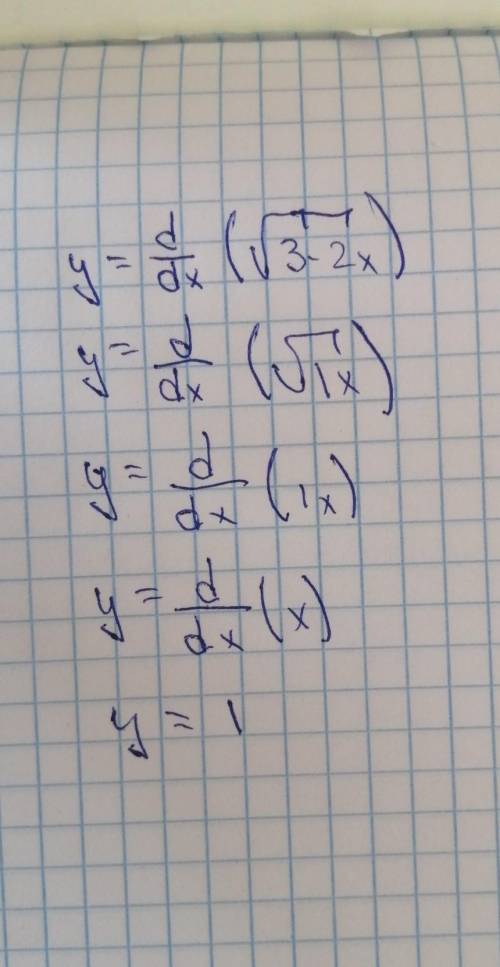 y = d/dx (√3-2x)
y = d/dx (√1x)
y = d/dx (1x)
y = d/dx (x)
y = 1